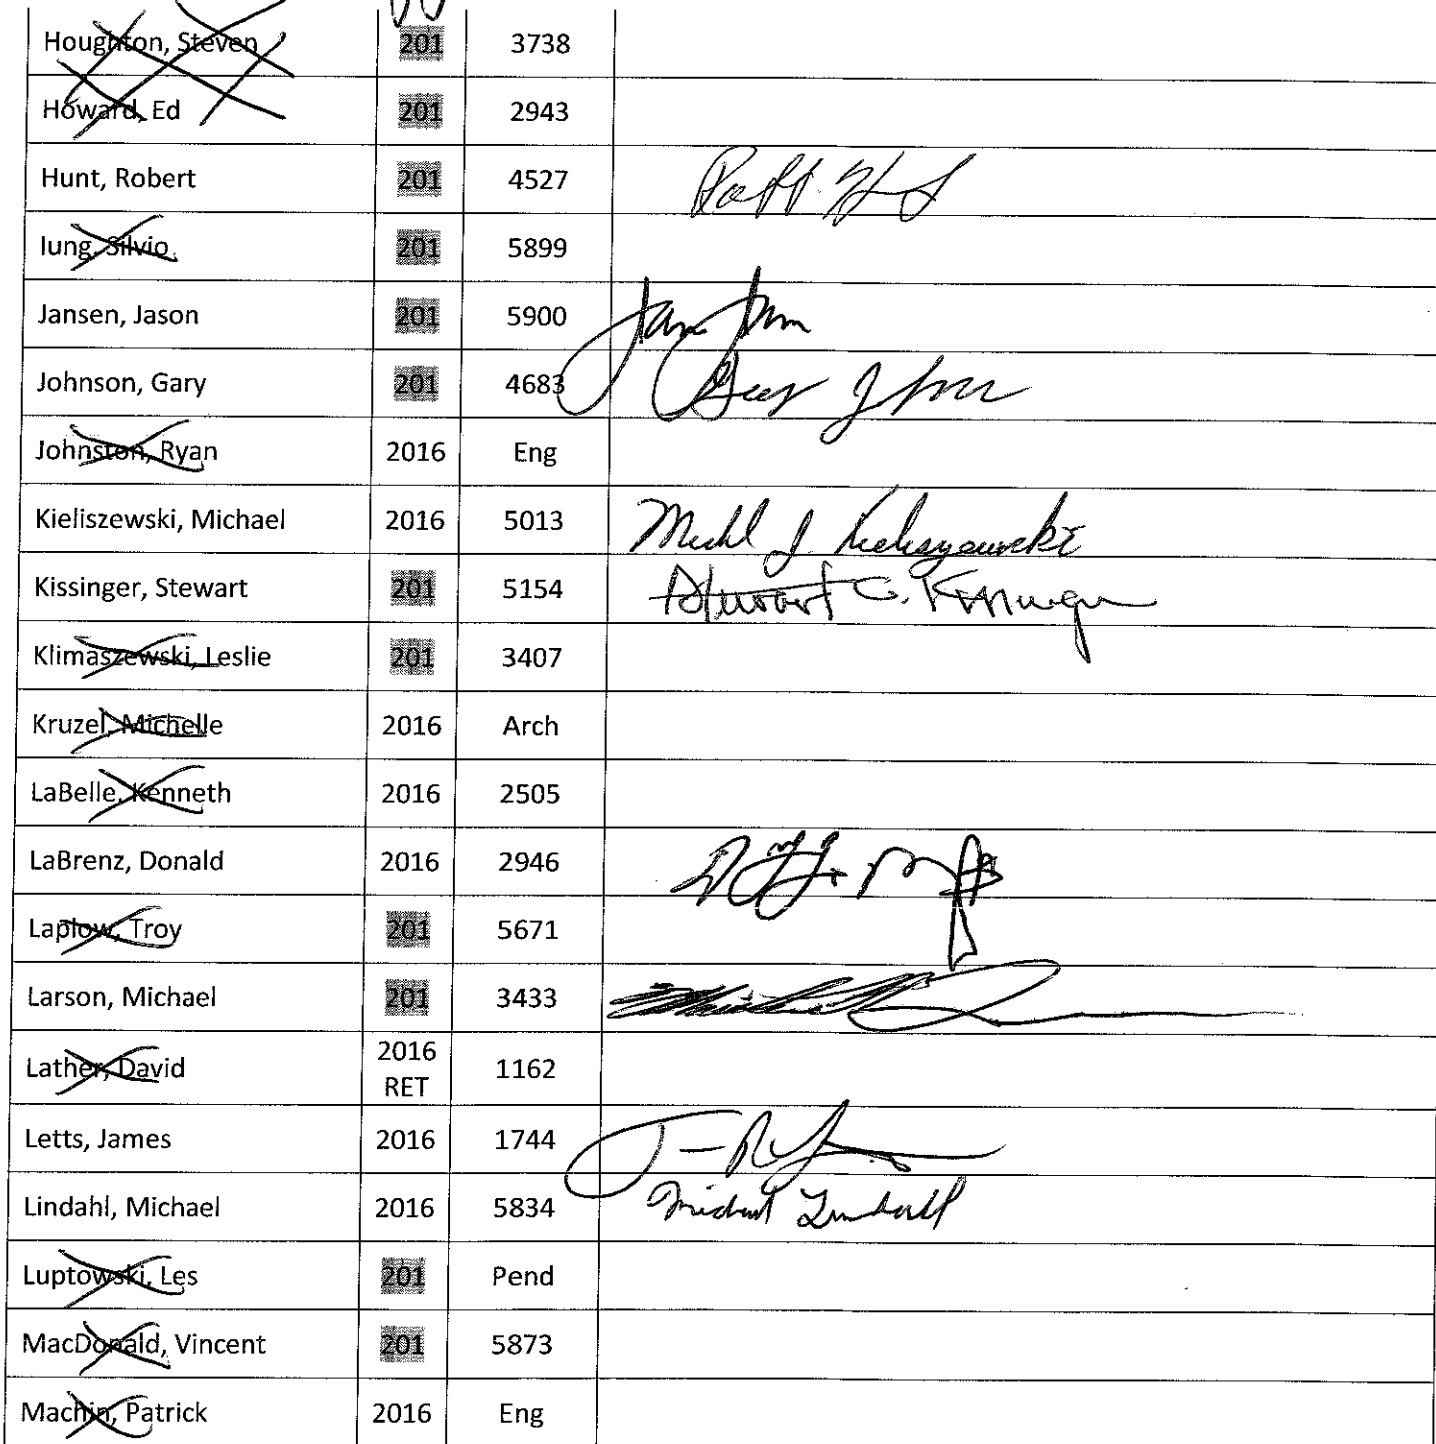 Houghton, Steven 201 3738
Howard, Ed 201 2943
Hunt, Robert 201 4527
Iung, Silvio 201 5899
Jansen, Jason 201 5900
Johnson, Gary 201 4683
Johnston, Ryan 2016 Eng
Kieliszewski, Michael 2016 5013 Michl J. Kieliszewski
Kissinger, Stewart 201 5154 Stewart G. Kissinger
Klimaszewski, Leslie 201 3407
Kruzel, Michelle 2016 Arch
LaBelle, Kenneth 2016 2505
LaBrenz, Donald 2016 2946
Laplow, Troy 201 5671
Larson, Michael 201 3433
Lather, David 2016 RET 1162
Letts, James 2016 1744
Lindahl, Michael 2016 5834 Michael Lindahl
Luptowski, Les 201 Pend
MacDonald, Vincent 201 5873
Machin, Patrick 2016 Eng